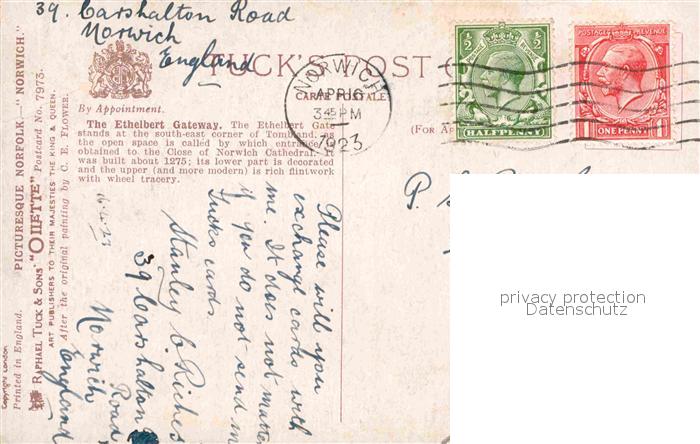 39. Carshalton Road
Norwich
England
TUCK'S POST C
CARTE POSTALE
(FOR A
By Appointment.
The Ethelbert Gateway. The Ethelbert Gate
stands at the south-east corner of Tombland, as
the open space is called by which entrance is
obtained to the Close of Norwich Cathedral. It
was built about 1275; its lower part is decorated
and the upper (and more modern) is rich flintwork
with wheel tracery.
NORWICH
APR 16
3 45 PM
1923
1/2 1/2
HALFPENNY
POSTAGE REVENUE
1 ONE PENNY 1
P.
privacy protection
Datenschutz
Please will you
exchange cards with
me. It does not matter
if you do not send me
Tucks cards.
Stanley C. Riches
39 Carshalton
Road
Norwich
England
PICTURESQUE NORFOLK.—"NORWICH."
RAPHAEL TUCK & SONS' "OILETTE" Postcard No. 7973.
ART PUBLISHERS TO THEIR MAJESTIES THE KING & QUEEN.
After the original painting by C. E. FLOWER.
Printed in England.
Copyright London